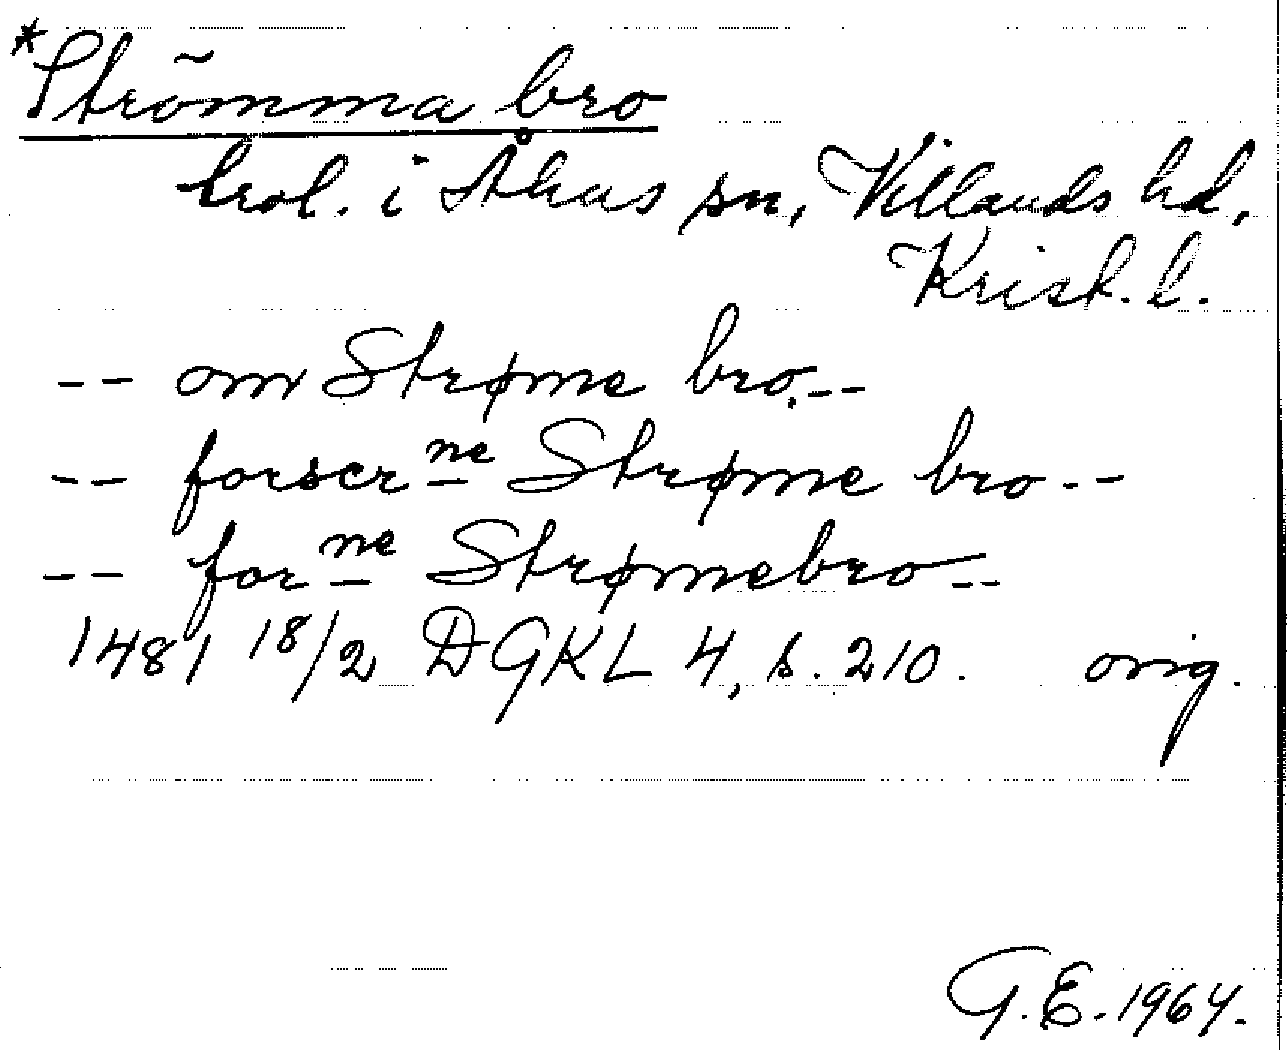 *Strömma bro
trol. i Åhus sn, Villands hd,
Krist. l.
-- om Strøme bro.--
-- forscrne Strøme bro --
-- forne Strømebro --
1481 18/2 DGKL 4, s. 210. orig.
G.E. 1964.